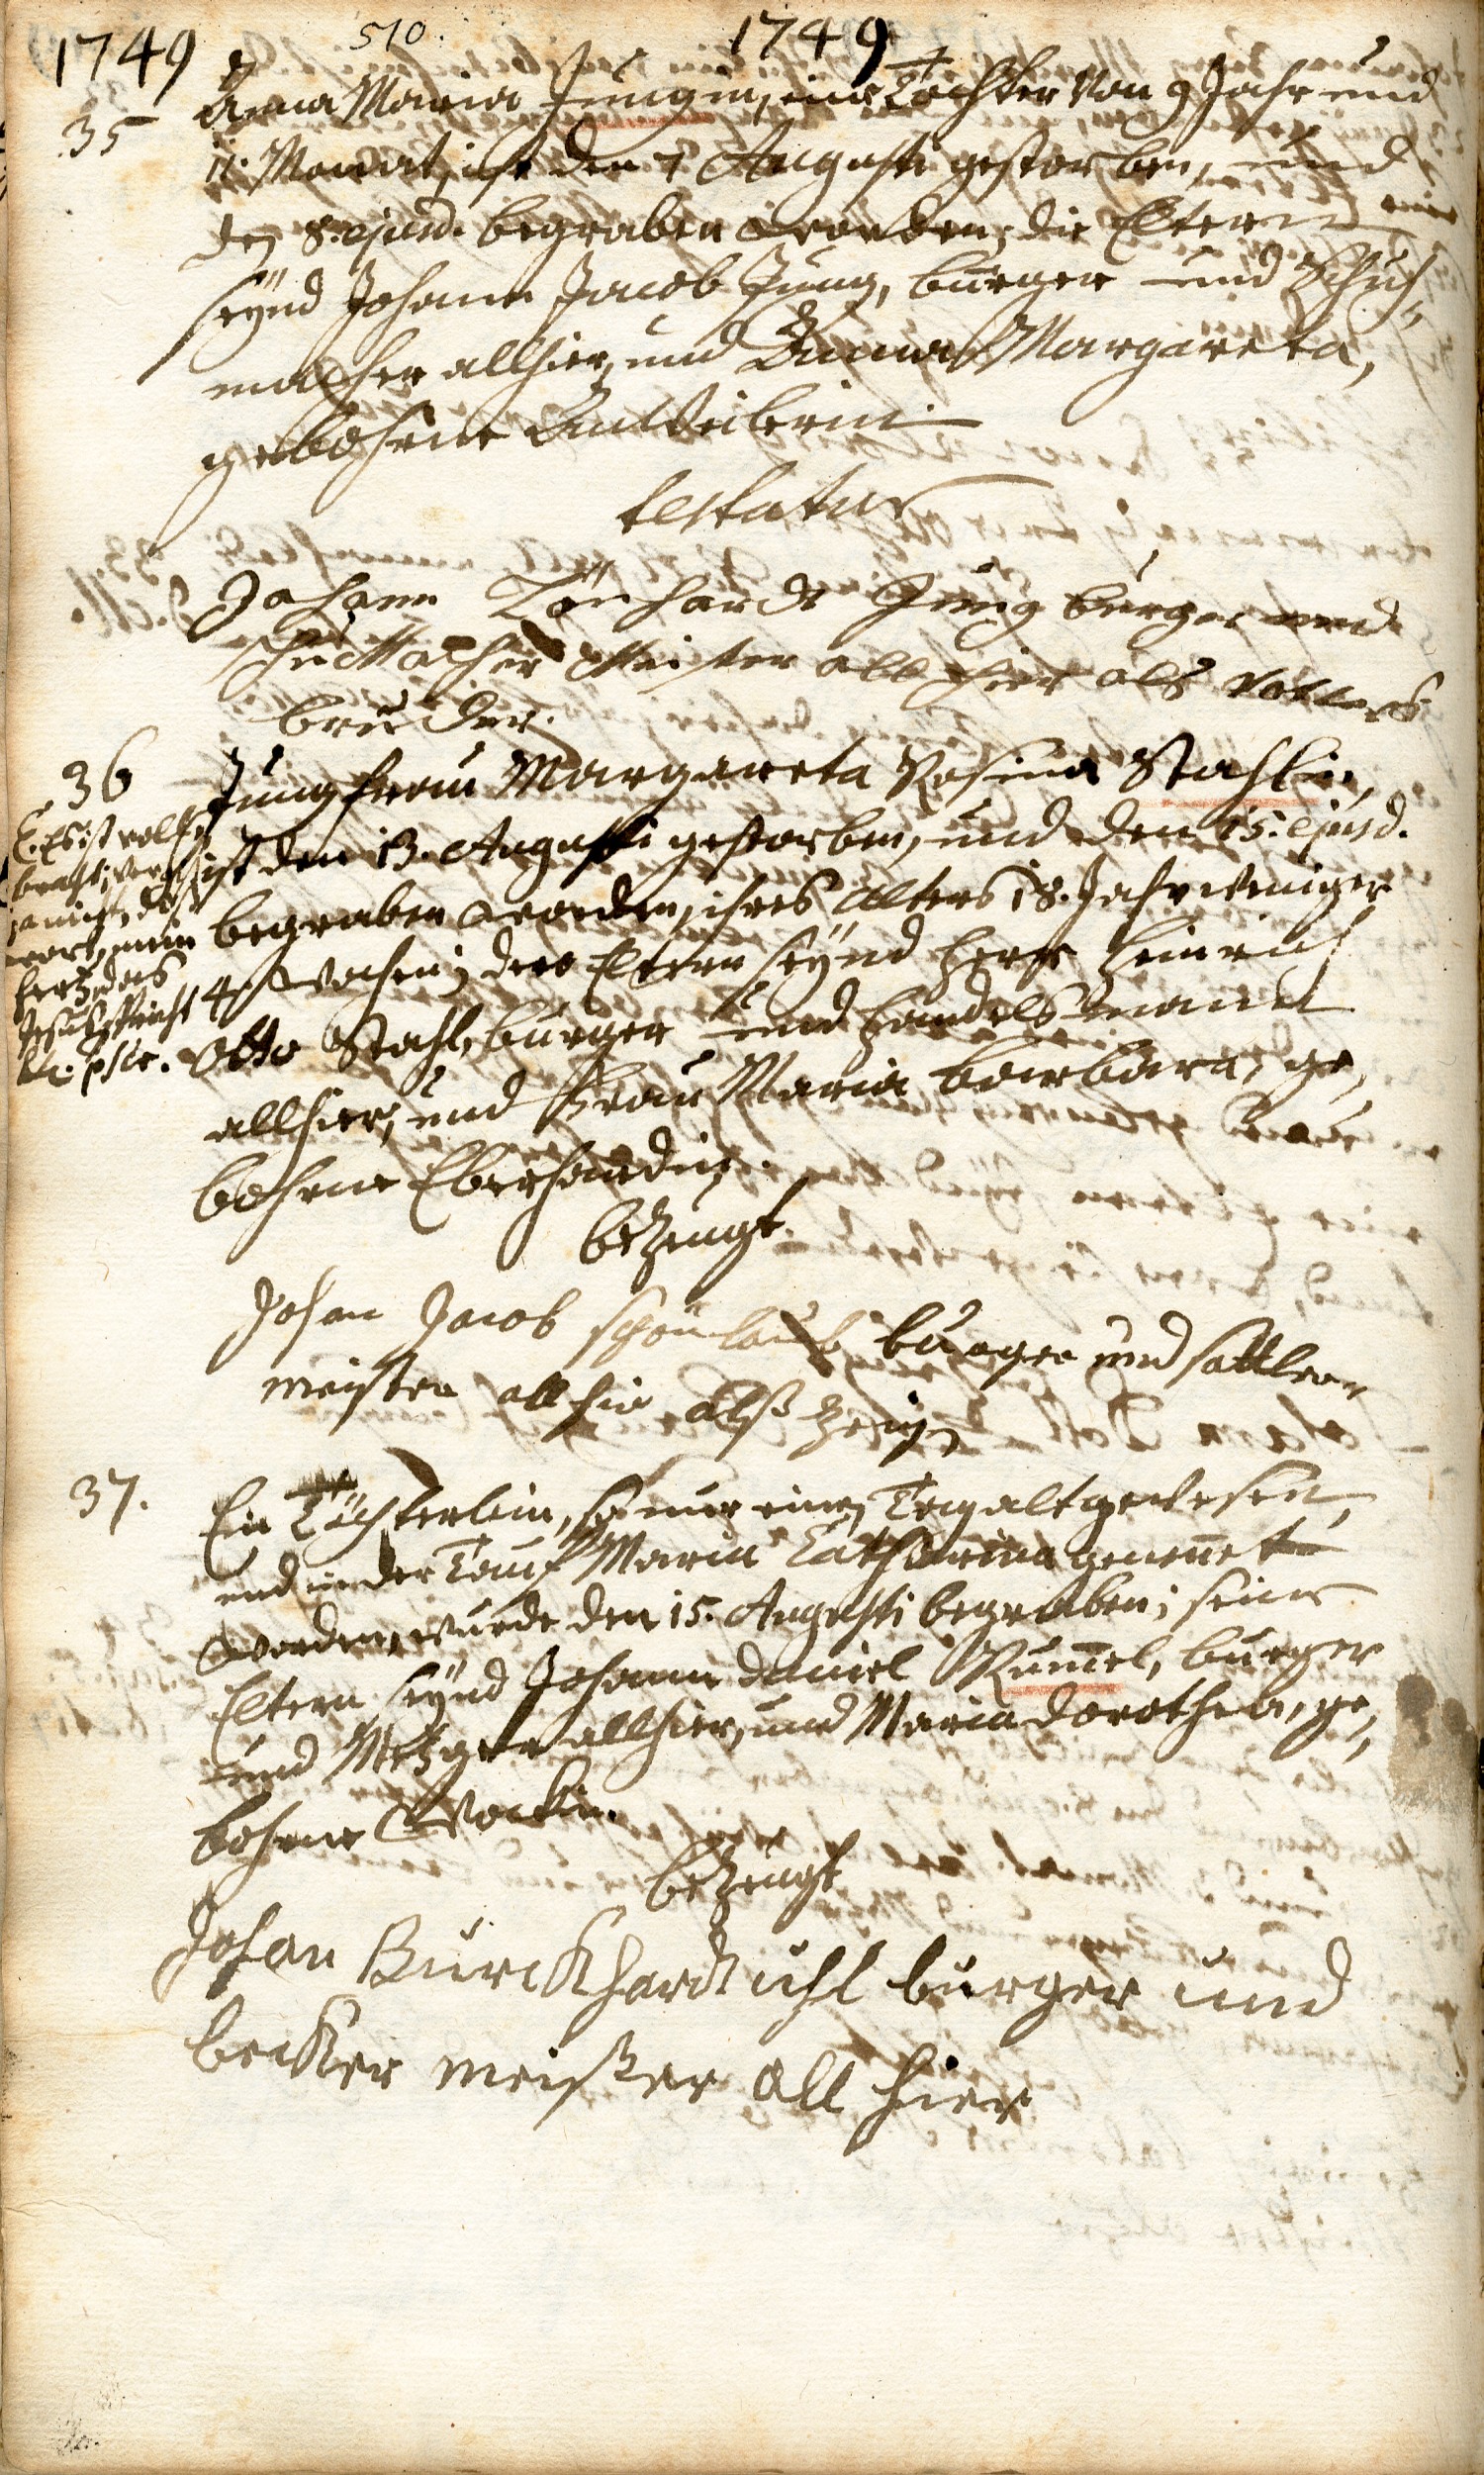 1749 510. 1749
35
Anna Maria Jungin, eine Tochter von 9 Jahr und
11. Monat, ist den 7 Augusti gestorben, und
den 8. ejusd. begraben worden; die Eltern
seynd Johann Jacob Jung, burger und Schuh-
macher allhier, und Anna Margareta,
gebohrne
testatur
Johann Lönhardt Jung burger und
schumacher Meister all hier als Vatters
bruder.
36
Jungfrau Margareta Rosina Stahlin,
ist den 13. Augusti gestorben, und den 15. ejusd.
begraben worden, ihres Alters 18. Jahr weniger
4 Wochen; dero Eltern seynd Herr Heinrich
Otto Stahl, burger und Handelsmann
allhier, und Frau Maria barbara, ge-
bohrne Eberhardin.
E. Es ist voll-
bracht; vergiß
ja nicht, diß
wort, mein
Hertz, das
Jesus spricht
bezeugt
Johan Jacob schönlaub burger und sattler-
meister all hie alß zeug
37.
Ein Töchterlein, so nur einen Tag alt gewesen,
und in der Tauf Maria Catharina genennet
worden, wurde den 15. Augusti begraben; seine
Eltern seynd Johann Daniel Rummel, burger
und Metzger allhier, und Maria Dorothea, ge-
bohrne
bezeugt
Johan Burckhardt uhl burger und
becker meister all hier